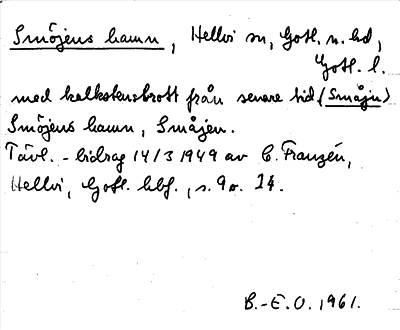 Smöjens hamn, Hellvi sn, Gotl. n. hd,
Gotl. l.
med kalkstensbrott från senare tid (Småjn)
Smöjens hamn, Småjen.
Tävl.-bidrag 14/3 1949 av C. Franzén,
Hellvi, Gotl. hbf., s. 9 o. 14.
B.-E. O. 1961.